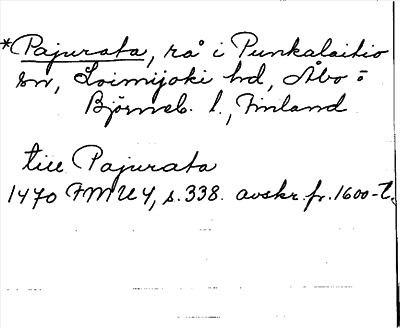 *Pajurata, rå i Punkalaitio
sn, Loimijoki hd, Åbo o
Björneb. l., Finland
till Pajurata
1470 FMU 4, s. 338. avskr. fr. 1600-t.